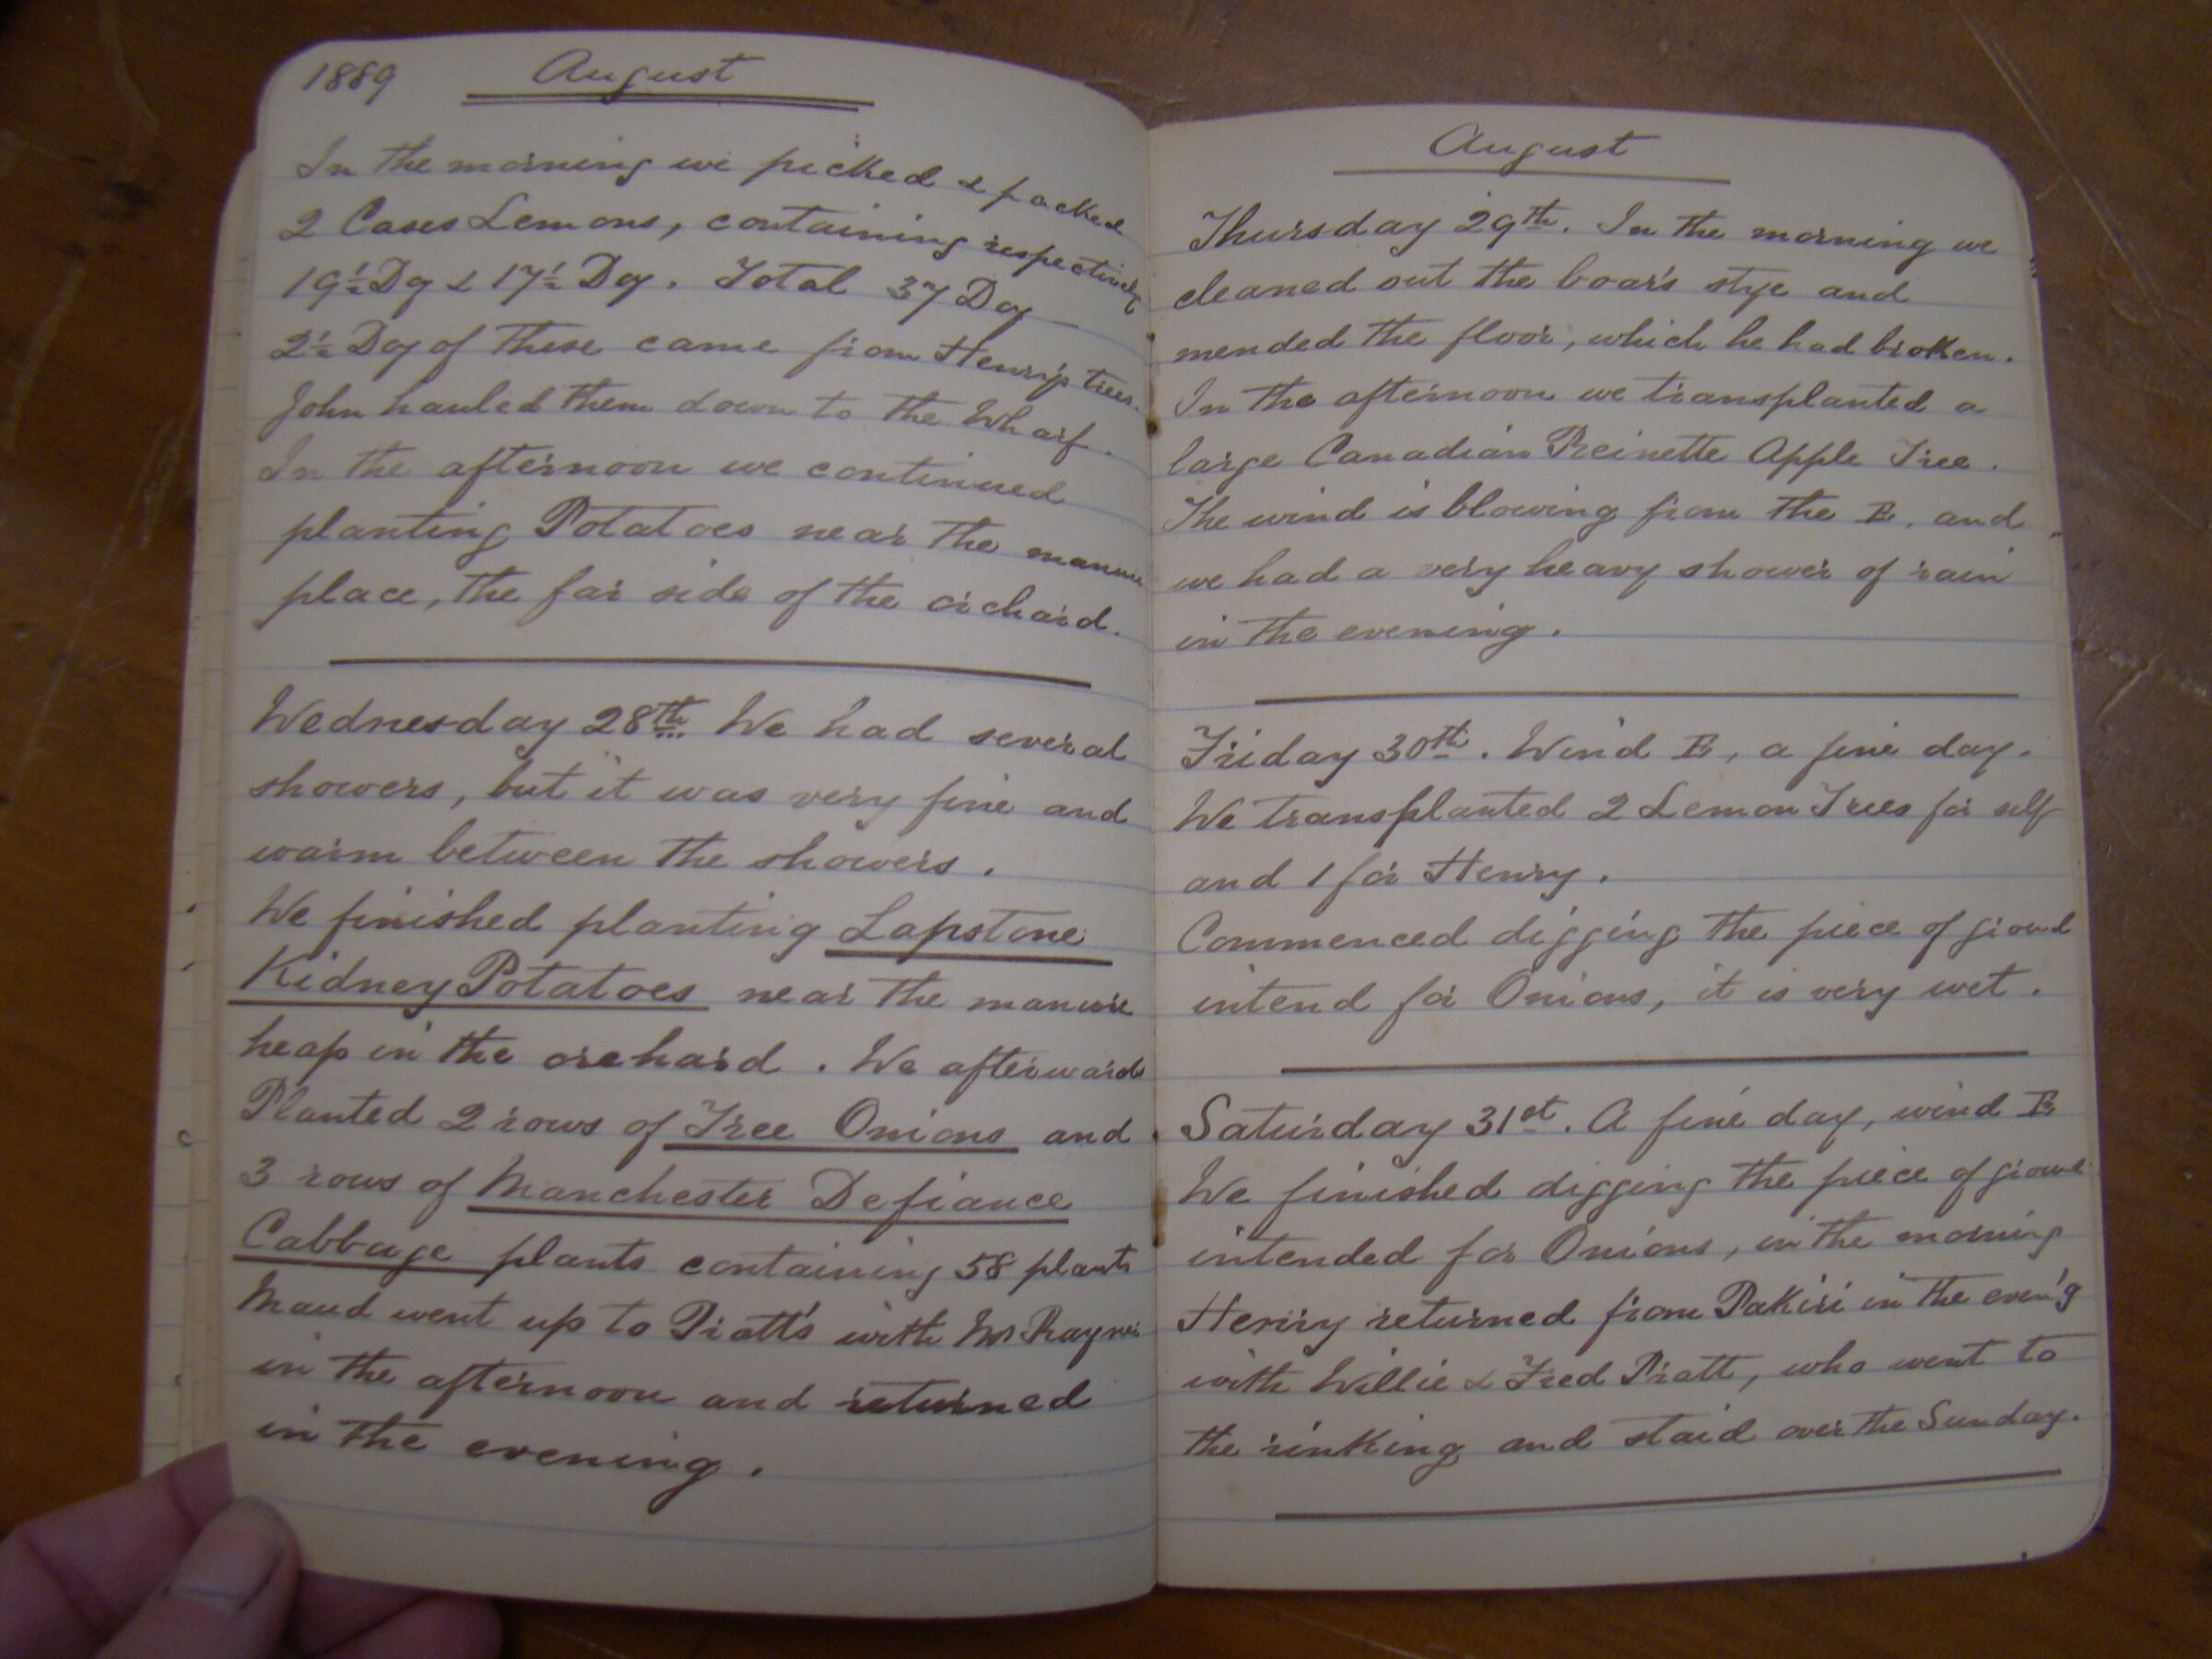 1889 August
In the morning we picked & packed
2 Cases Lemons, containing respectively
19½ Dz & 17½ Dz. Total 37 Dz
2½ Dz of these came from Henry's trees.
John hauled them down to the Wharf.
In the afternoon we continued
planting Potatoes near the manure
place, the far side of the orchard.
Wednesday 28th. We had several
showers, but it was very fine and
warm between the showers.
We finished planting Lapstone
Kidney Potatoes near the manure
heap in the orchard. We afterwards
Planted 2 rows of Tree Onions and
3 rows of Manchester Defiance
Cabbage plants containing 58 plants
Maud went up to Pratt's with
in the afternoon and returned
in the evening.
August
Thursday 29th. In the morning we
cleaned out the boar's stye and
mended the floor, which he had broken.
In the afternoon we transplanted a
large Canadian Reinette Apple Tree.
The wind is blowing from the E, and
we had a very heavy shower of rain
in the evening.
Friday 30th. Wind E, a fine day.
We transplanted 2 Lemon Trees for self
and 1 for Henry.
Commenced digging the piece of ground
intend for Onions, it is very wet.
Saturday 31st. A fine day, wind E
We finished digging the piece of ground
intended for Onions, in the morning
Henry returned from Pakiri in the even'g
with Willie & Fred Pratt, who went to
the rinking and staid over the Sunday.